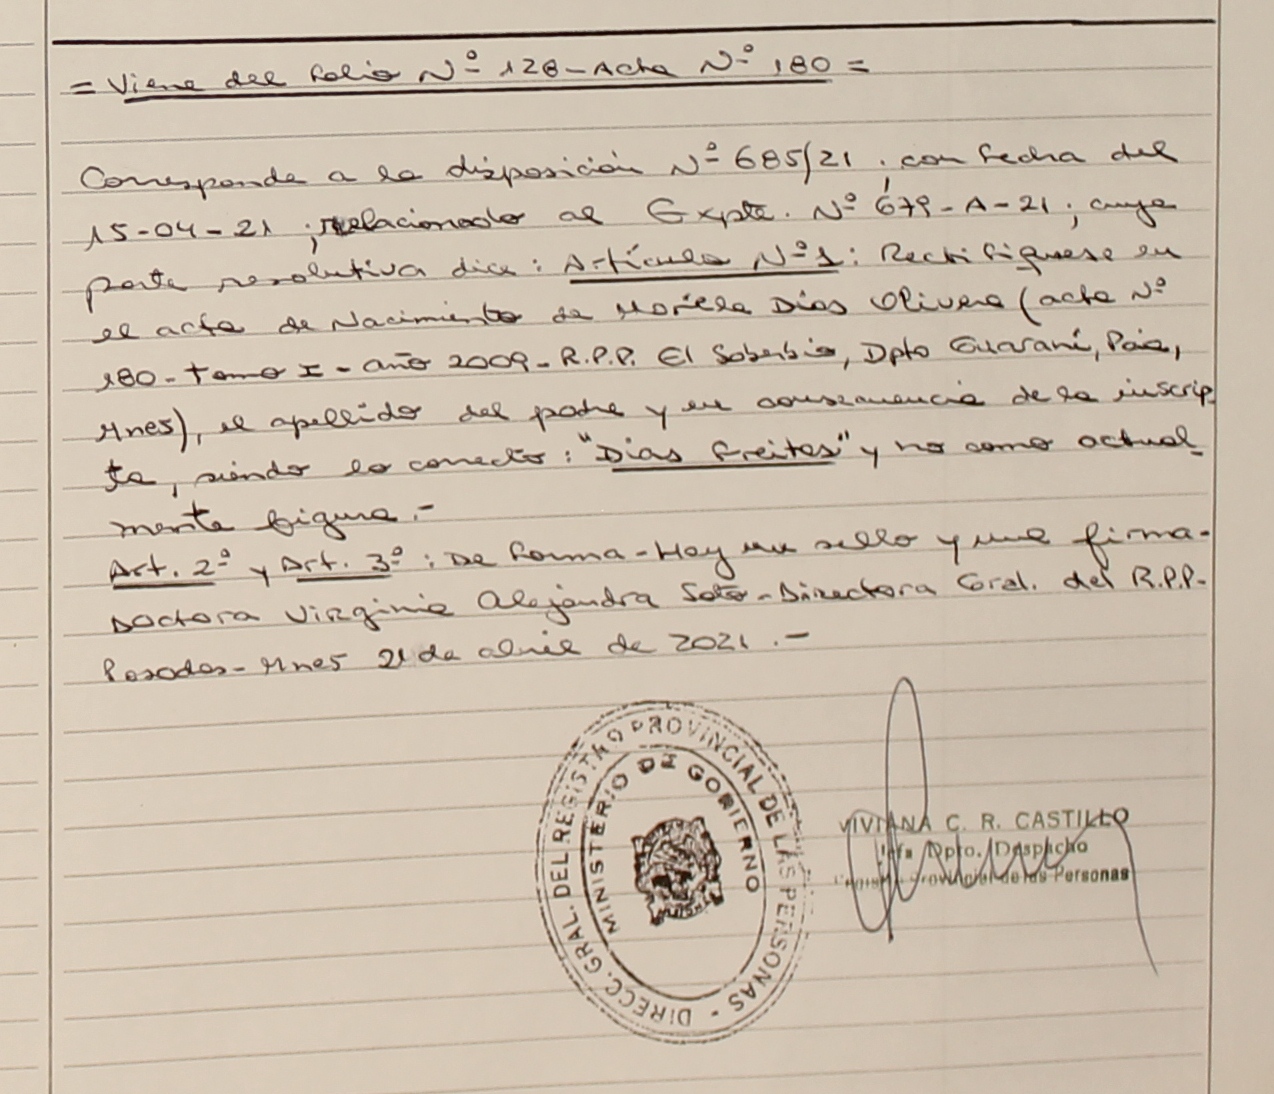 = Viene del folio Nº 128 - Acta Nº 180 =
Corresponde a la disposición Nº 685/21, con fecha del
15-04-21; relacionado al Expte. Nº 679-A-21; cuya
parte resolutiva dice: Artículo Nº 1: Rectifiquese en
el acta de Nacimiento de Mariela Dias Olivera (acta Nº
180 - Tomo I - año 2009 - R.P.P. El Soberbio, Dpto Guaraní, Pcia,
Mnes), el apellido del padre y en consecuencia de la inscrip-
ta, siendo lo correcto: "Dias Freitas" y no como actual-
mente figura.-
Art. 2º y Art. 3º: De forma - Hay un sello y una firma-
Doctora Virginia Alejandra Soto - Directora Gral. del R.P.P.-
Posadas - Mnes 21 de abril de 2021.-
DIRECC. GRAL. DEL REGISTRO PROVINCIAL DE LAS PERSONAS -
MINISTERIO DE GOBIERNO
VIVIANA C. R. CASTILLO
Jefa Dpto. Despacho
Registro Provincial de las Personas